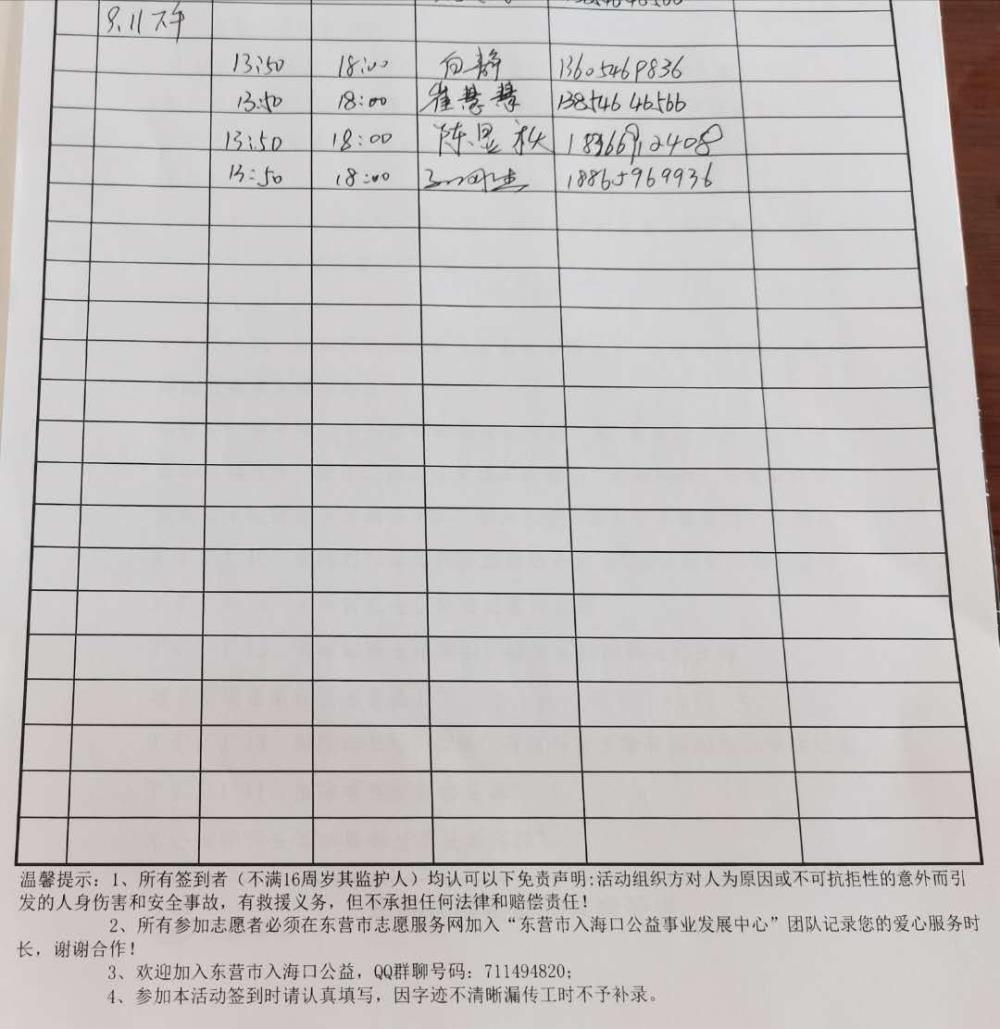 8.11 下午
13:50 18:00 白静 13605469836
13:50 18:00 崔慧慧 13854646566
13:50 18:00 陈昱秋 18366912408
13:50 18:00 18865969936
温馨提示：1、所有签到者（不满16周岁其监护人）均认可以下免责声明:活动组织方对人为原因或不可抗拒性的意外而引
发的人身伤害和安全事故，有救援义务，但不承担任何法律和赔偿责任！
2、所有参加志愿者必须在东营市志愿服务网加入“东营市入海口公益事业发展中心”团队记录您的爱心服务时
长，谢谢合作！
3、欢迎加入东营市入海口公益，QQ群聊号码：711494820；
4、参加本活动签到时请认真填写，因字迹不清晰漏传工时不予补录。